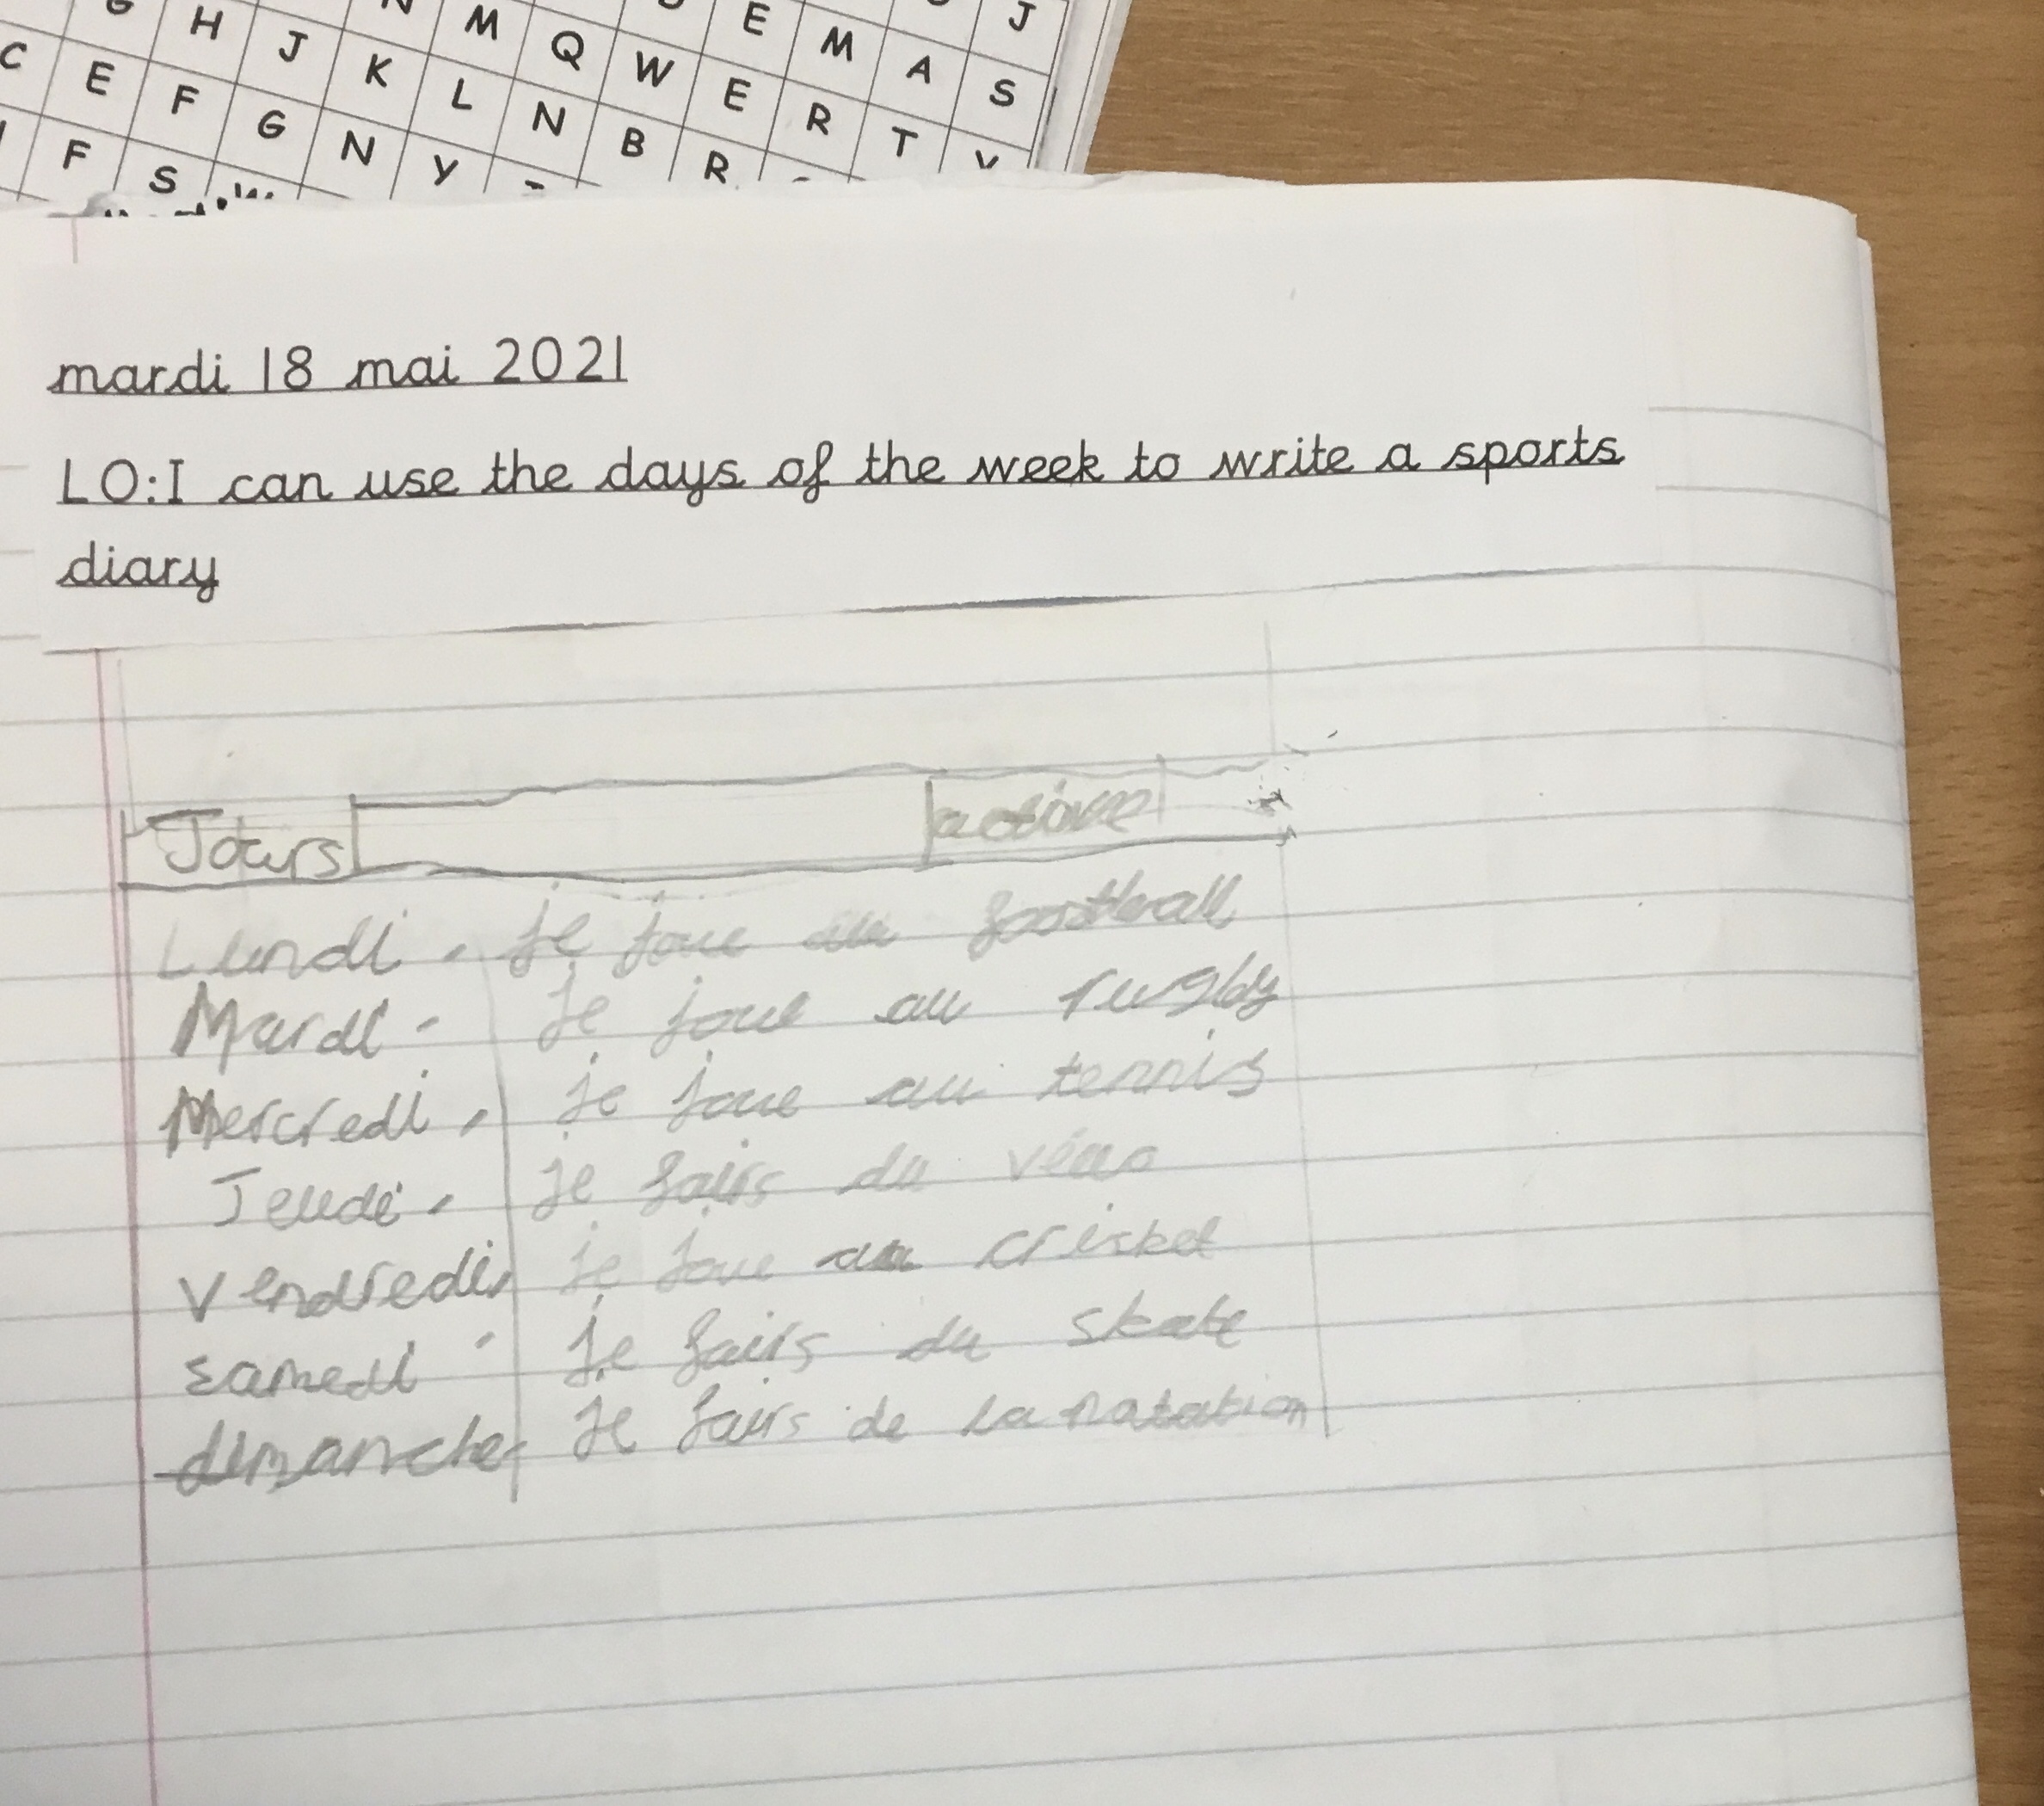 G H J N M Q E M J
C E F J K L W E A S
F S G N Y N B R R T
mardi 18 mai 2021
LO:I can use the days of the week to write a sports
diary
Jours
Lundi - je joue au football
Mardi - je joue au rugby
Mercredi - je joue au tennis
Jeudi - je fairs du vélo
Vendredi, je joue au cricket
samedi - je fairs du skate
dimanche - je fairs de la natation